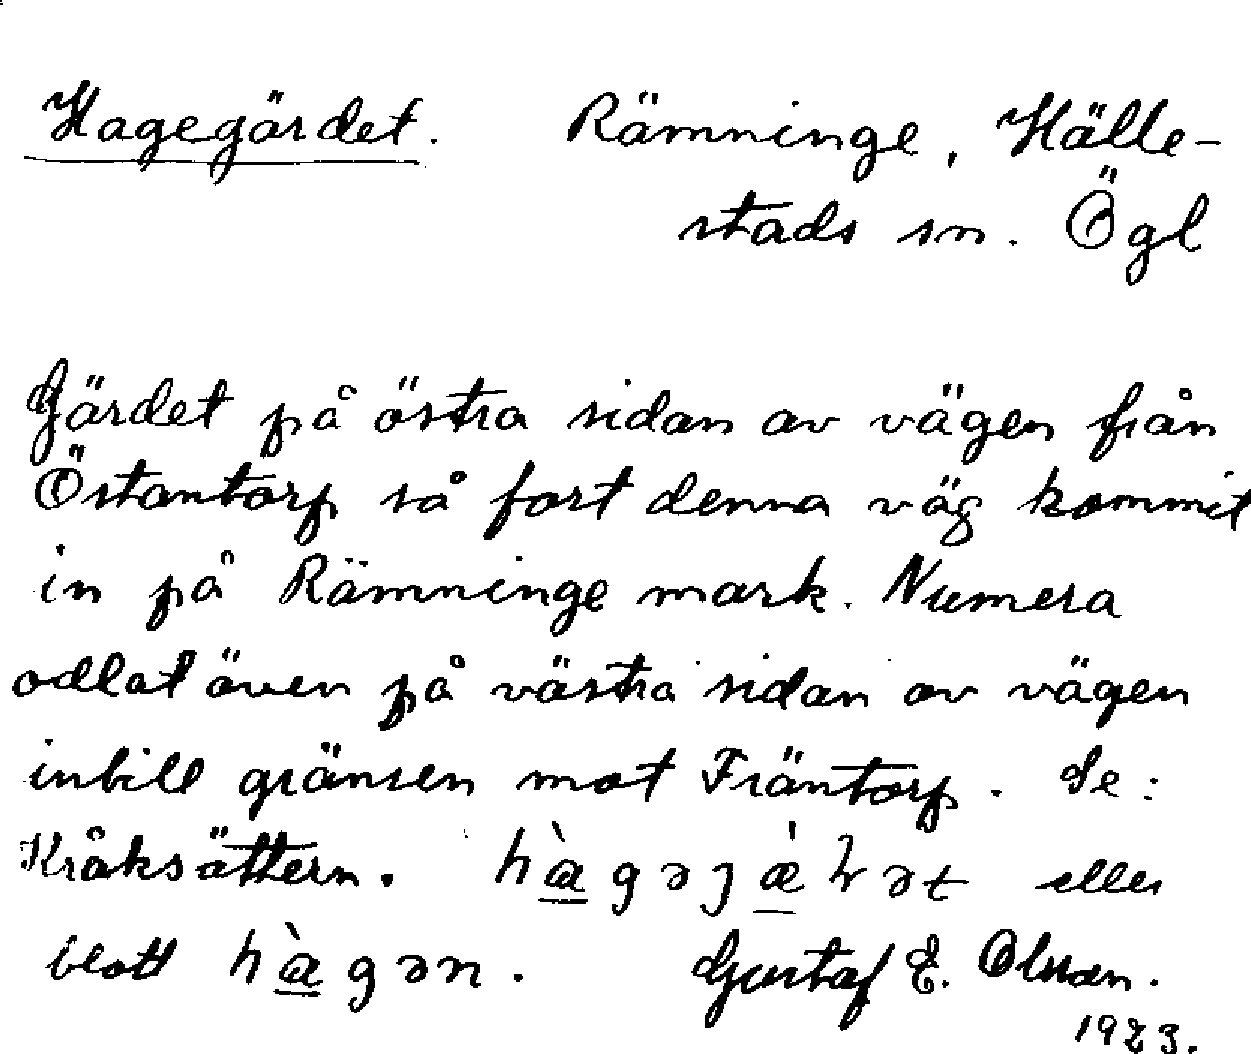 Hagegärdet. Rämninge, Hälle-
stads sn. Ögl
Gärdet på östra sidan av vägen från
Östantorp så fort denna väg kommit
in på Rämninge mark. Numera
odlat även på västra sidan av vägen
intill gränsen mot Fräntorp. Se:
Kråksättern. eller
blott Gustaf E. Olsson.
1923.